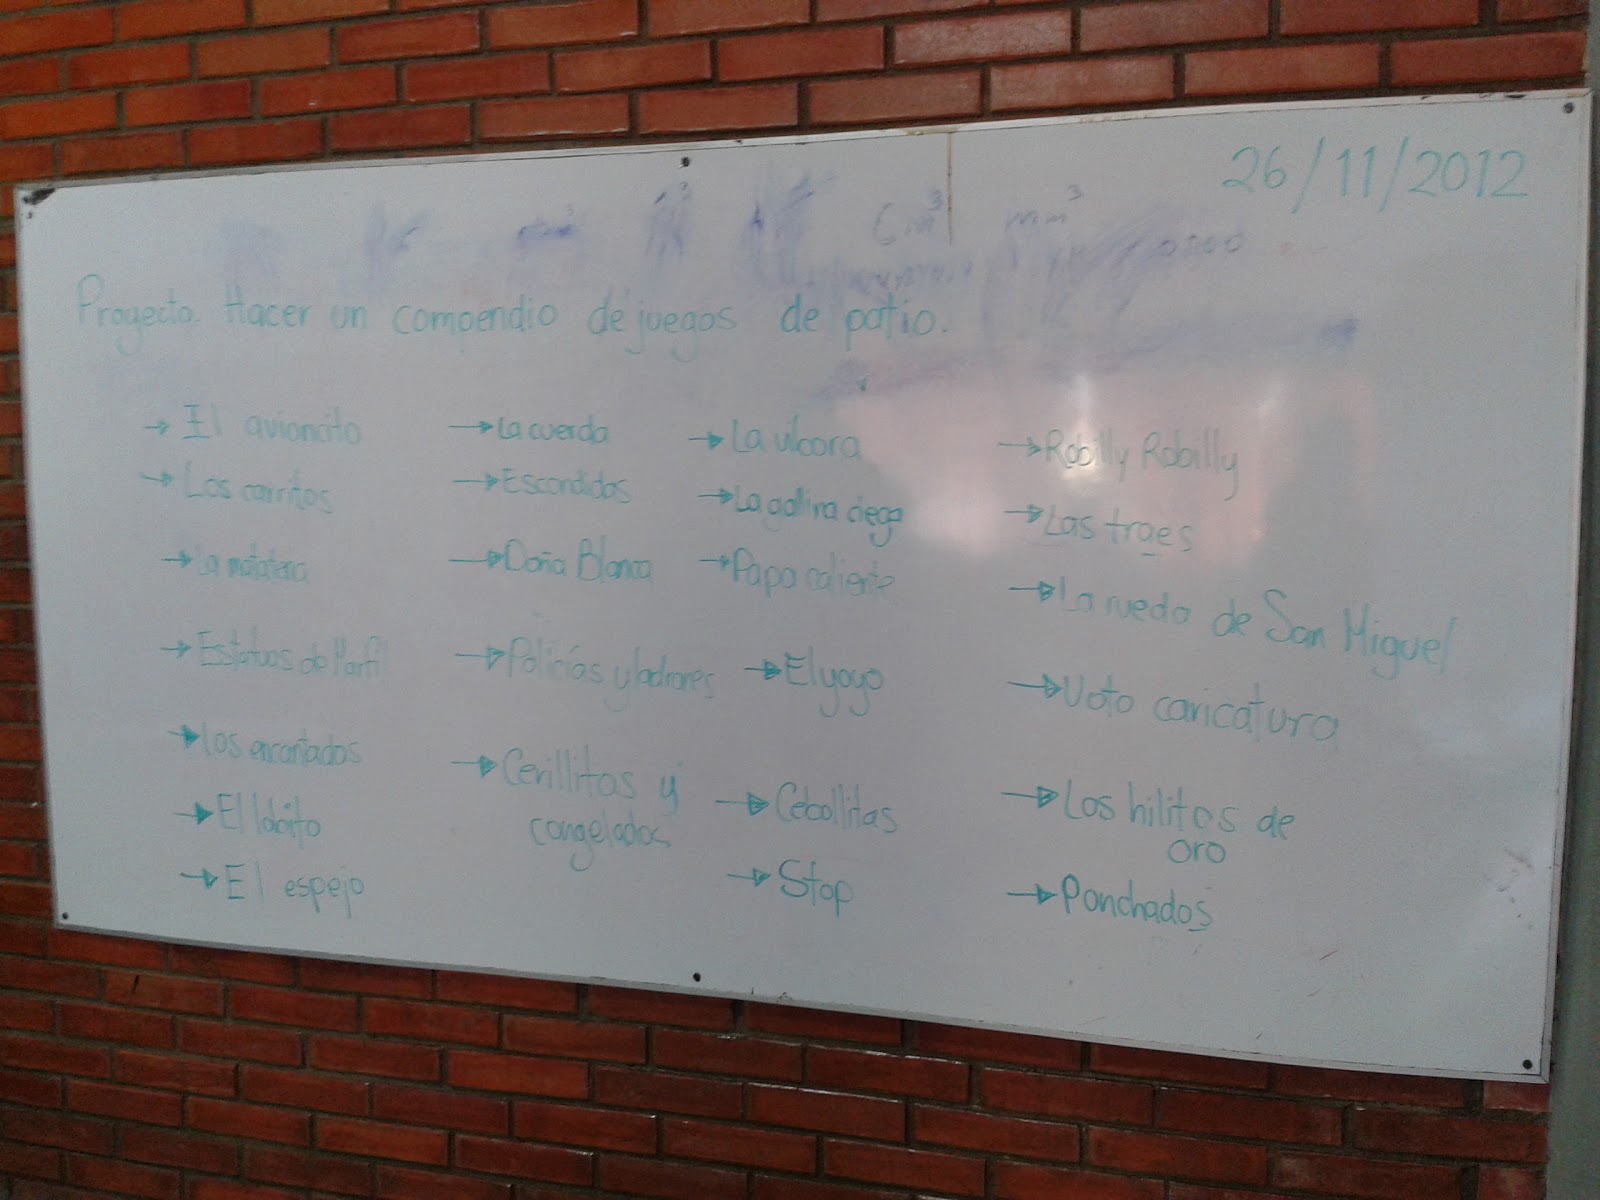 26/11/2012
cm³ mm³
Proyecto. Hacer un compendio de juegos de patio.
→ El avioncito
→ Los carritos
→ La matatena
→ Estatuas de Marfil
→ Los encantados
→ El lobito
→ El espejo
→ La cuerda
→ Escondidas
→ Doña Blanca
→ Policías y ladrones
→ Cerillitos y
congelados
→ La víbora
→ La gallina ciega
→ Papa caliente
→ El yoyo
→ Cebollitas
→ Stop
→ Robilly Robilly
→ Las traes
→ La rueda de San Miguel
→ Voto caricatura
→ Los hilitos de
oro
→ Ponchados